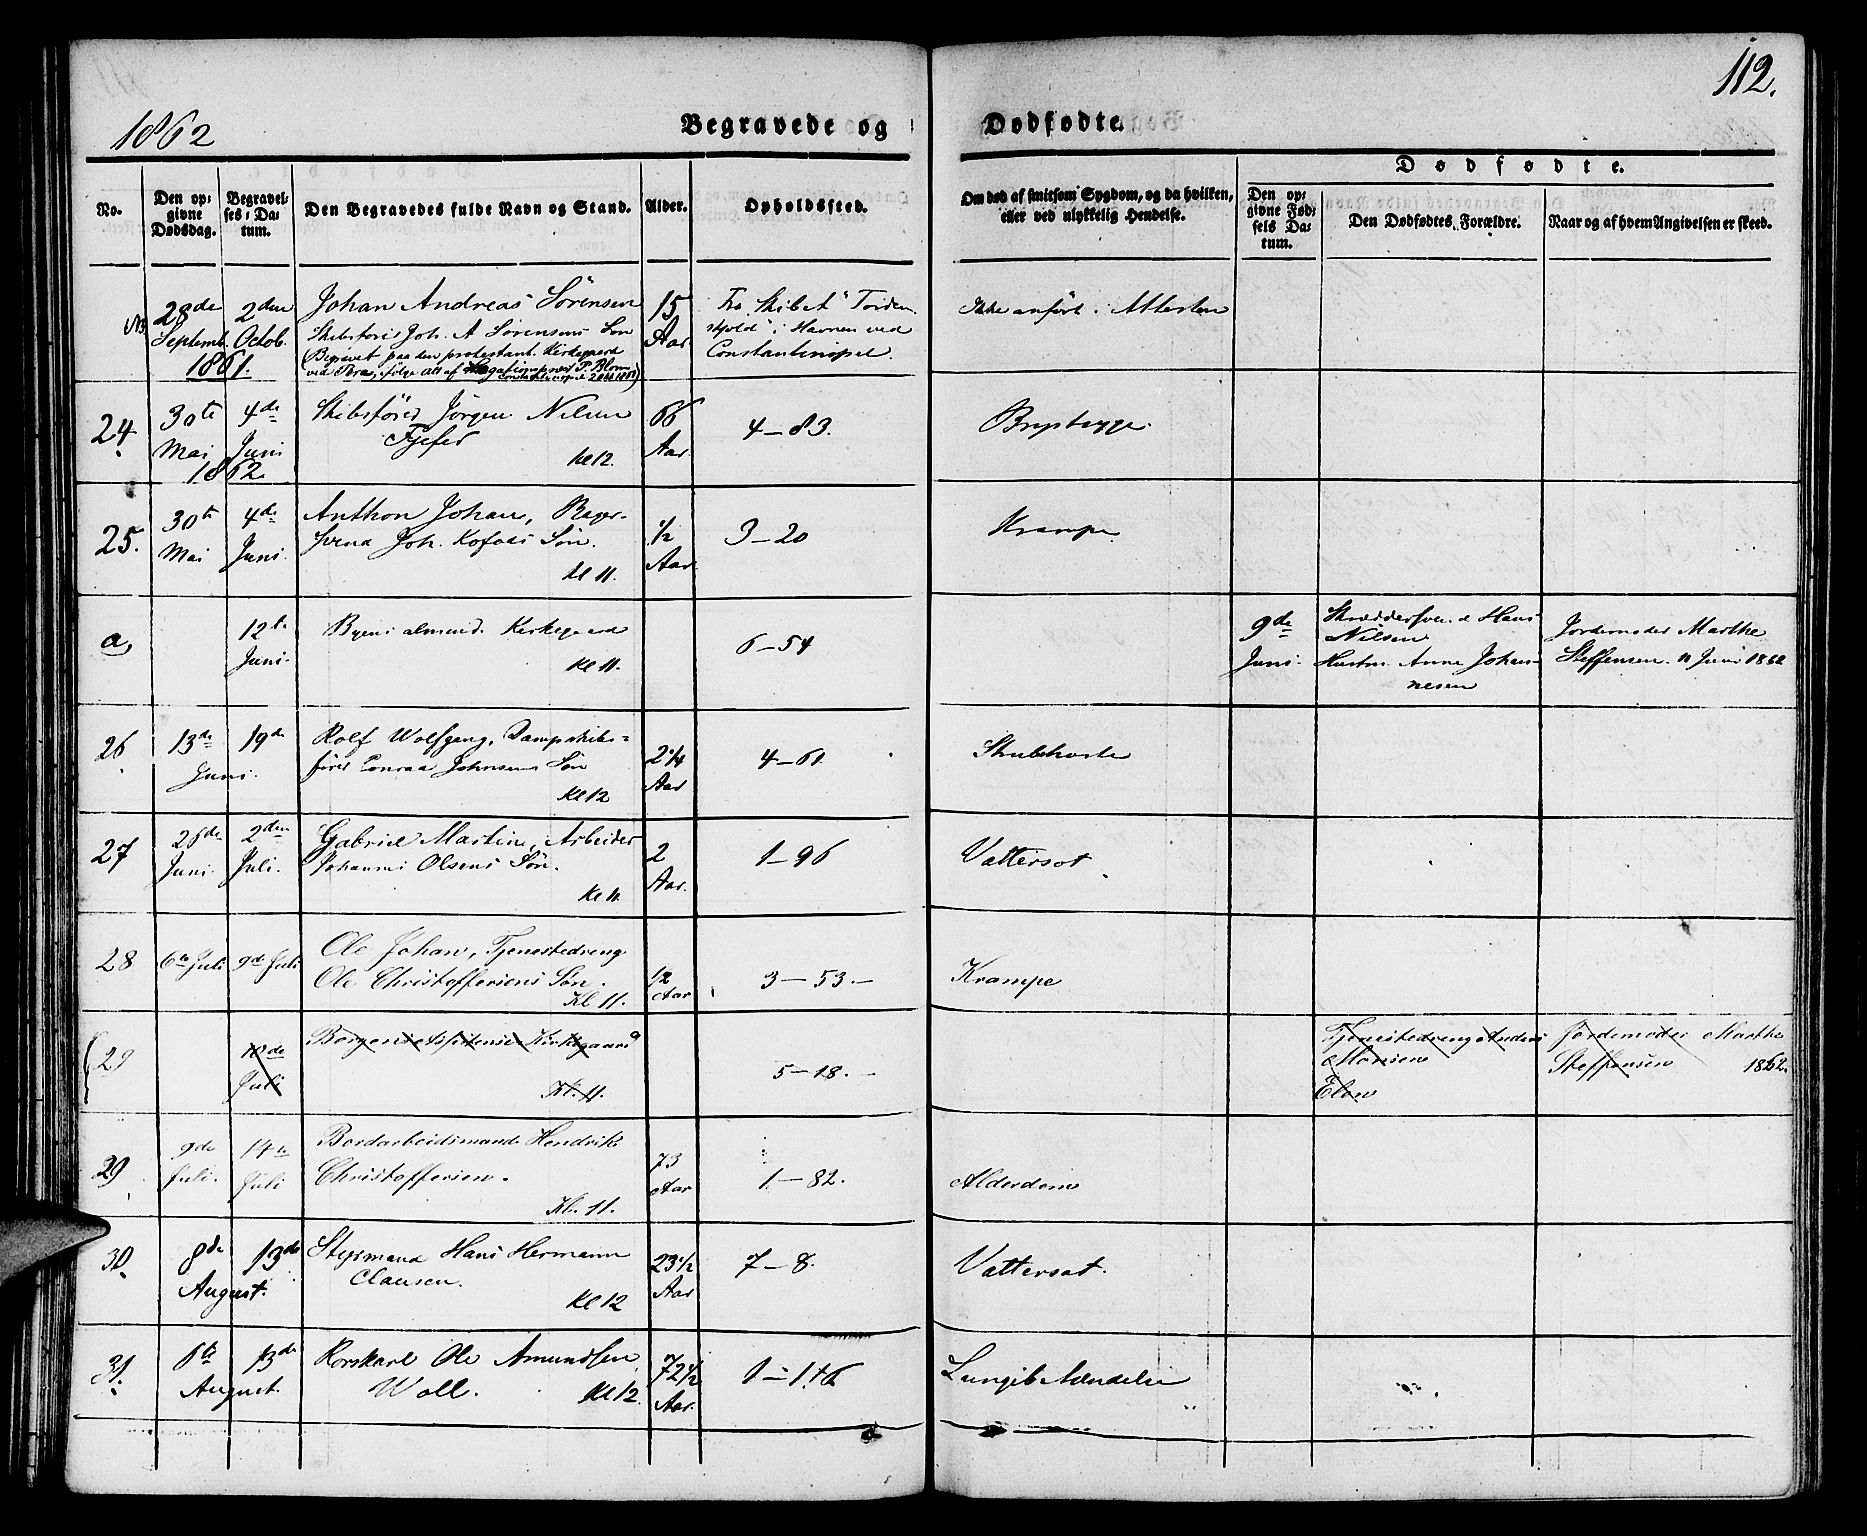 112.
1862 Begravede og Dødfødte.
Dødfødte.
No. Den opgivne Dødsdag. Begravelses-Datum. Den Begravedes fulde Navn og Stand. Alder. Opholdssted. Om død af smitsom Sygdom, og da hvilken, eller ved ulykkelig Hendelse. Den opgivne Fødsels Datum. Den Dødfødtes Forældre. Naar og af hvem Angivelsen er skeed.
28de 2den Johan Andreas Sörensen 15 Fra Skibet "Torden Ikke anfört i Attesten
Septemb. Octob. Skibsförer Joh. A Sörensens Sön Aar skjold" i Havnen ved
1861. Begravet paa den protestant. Kirkegaard Constantinopel.
ved Pera, ifölge Att af Legationspræst P. Blom
24. 30te 4de Skibsförer Jörgen Nilsen 66 4-83. Brystsyge.
Mai Juni Fjefer Aar
1862 Kl 12.
25. 30te 4de Anthon Johan, Bager- 1/2 3-20 Krampe
Mai Juni. svend Joh. Kofods Sön. Aar
Kl 11.
a, 12te Byens almind. Kirkegaard 6-54 9de Skræddersvend Hans Jordemoder Marthe
Juni. Kl 11. Juni. Nilsen Steffensen. 11 Juni 1862
Hustru Anne Johan-
nesen
26. 13de 19de Rolf Wolfgang, Dampskibs= 2 1/4 4-61. Strubehoste
Juni. förer Conrad Johnsens Sön Aar
Kl 12
27 26de 2den Gabriel Martin, Arbeider 2 1-96 Vattersot
Juni. Juli. Johannes Olsens Sön. Aar.
Kl 11.
28 6te Juli 9de Juli Ole Johan, Tjenestedreng 1/2 3-53- Krampe
Ole Christoffersens Sön. Aar
Kl 11.
29 10de Kirkegaard 5-18.- Tjenestedreng Anders Jordemoder Marthe
Juli Kl. 11. Monsen Steffensen 1862.
29 9de 14de Bordarbeidsmand Hendrik 73 1-82. Alderdom
Juli. Juli Christoffersen. Aar
Kl. 11.
30. 8de 13de Styrmand Hans Hermann 23 1/2 7-8. Vattersot.
August. Clausen. Aar
Kl 12
31. 6te 13de Korskarl Ole Amundsen 72 1/2 1-116 Lungebetændelse
August. Woll. Kl 12. Aar.